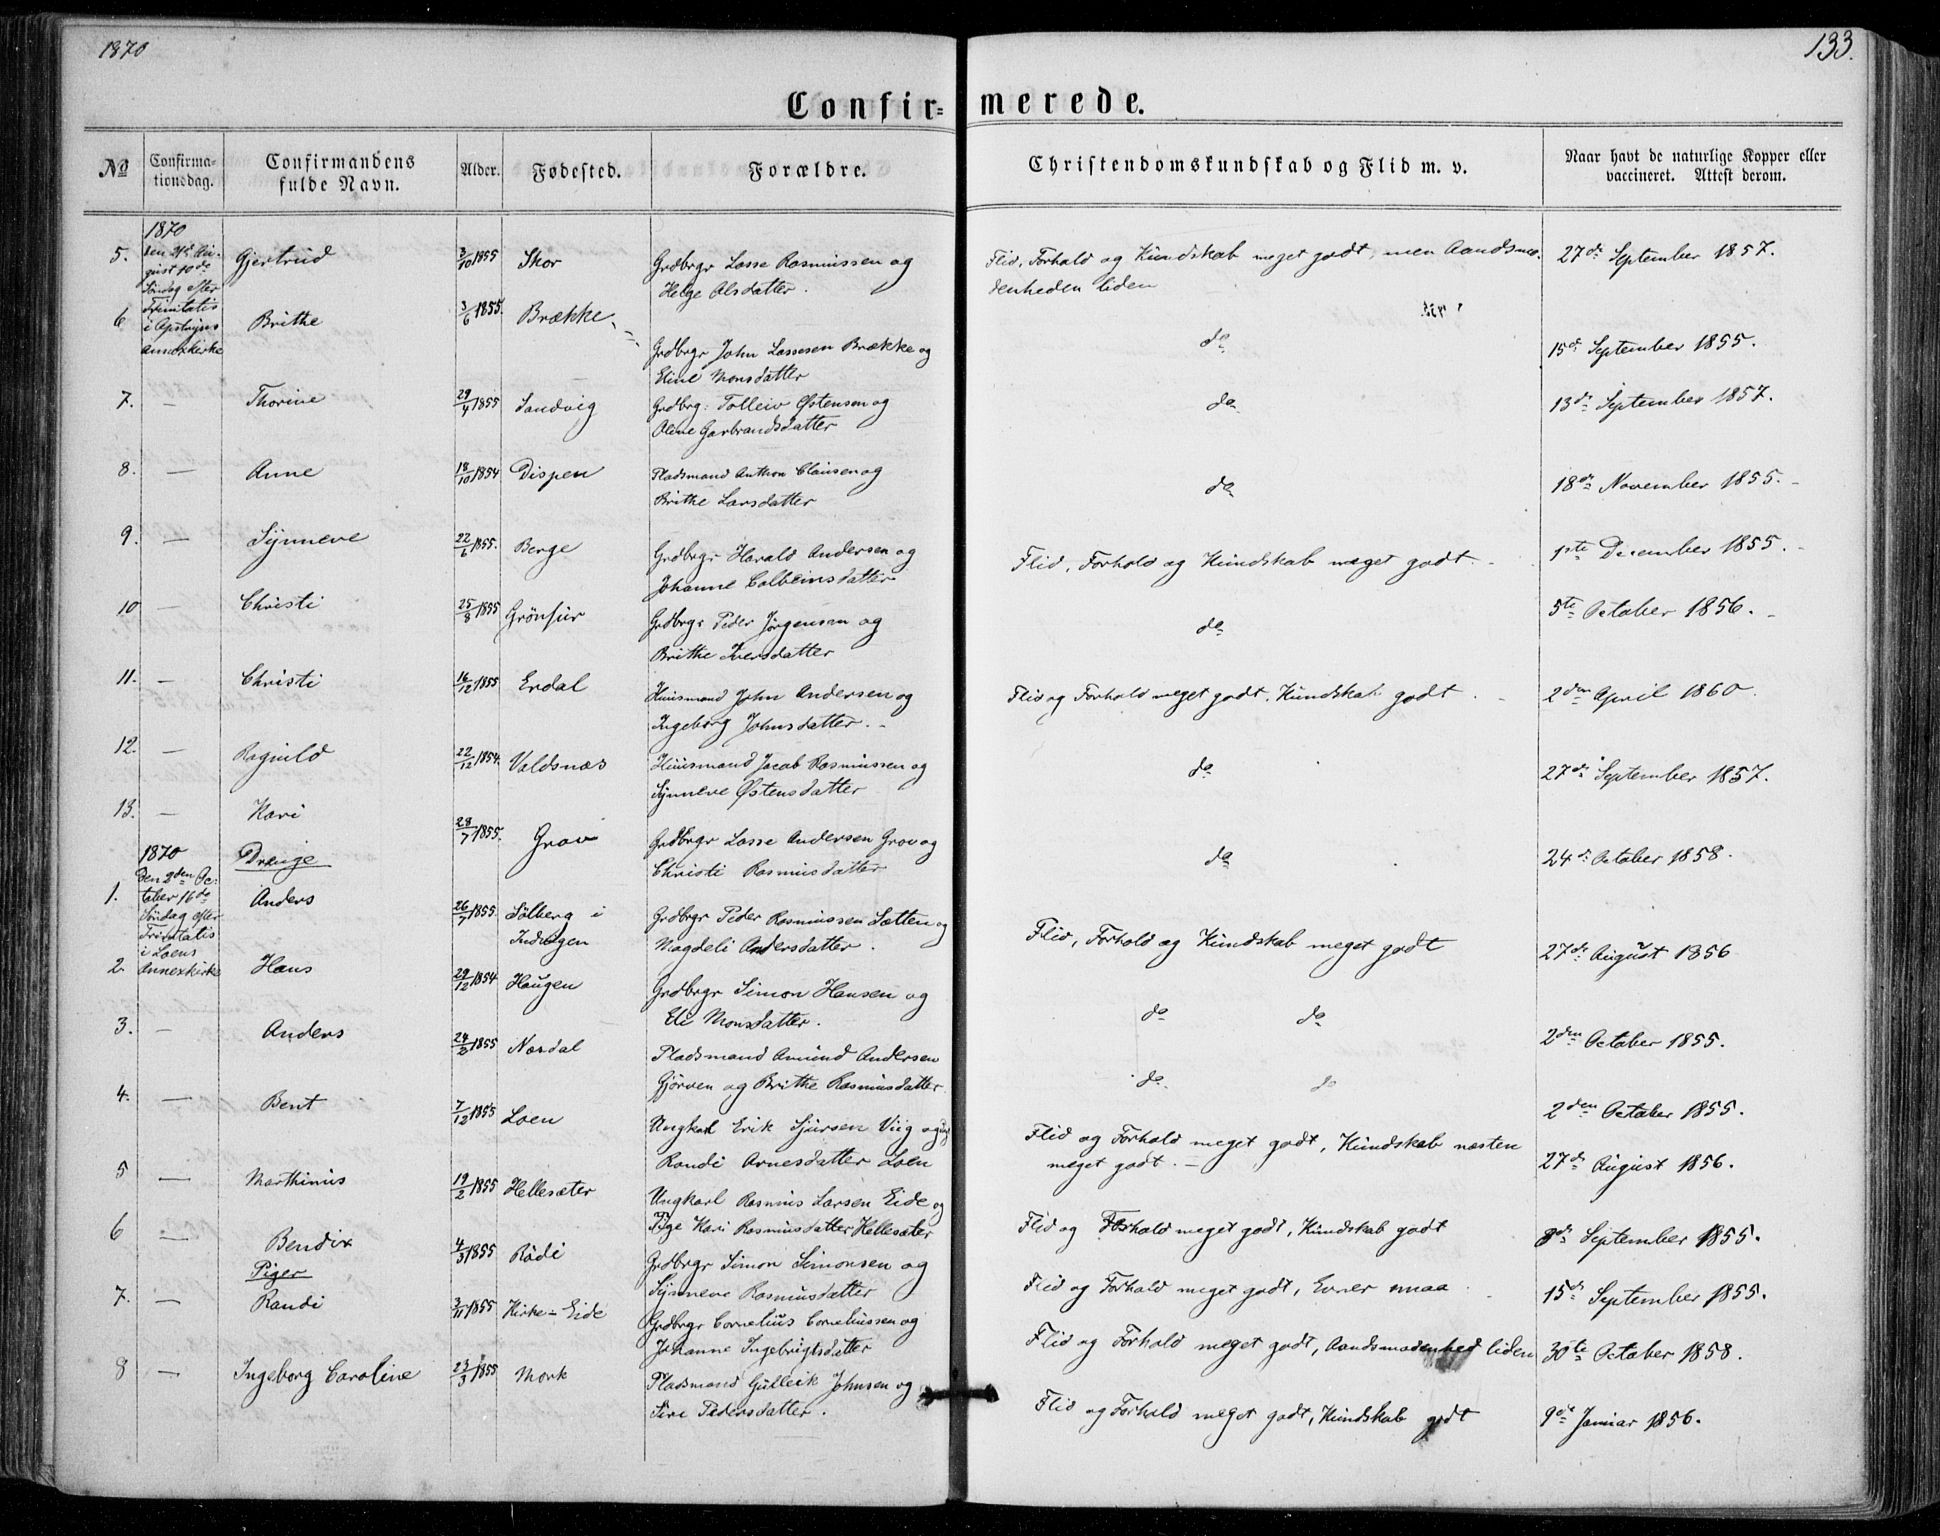 1870
133.
Confir=merede.
No
Confirmationsdag.
Confirmandens fulde Navn.
Alder.
Fødested.
Forældre.
Christendomskundskab og Flid m. v.
Naar havt de naturlige Kopper eller vaccineret. Attest derom.
1870
den 21de August 10de Søndag efter Trinitatis i Annexkirke
5. Gjertrud 3/10 1855 Skor Grdbrgr Lasse Rasmussen og Helge Olsdatter. Flid, Forhold og Kundskab meget godt, men Aandsmodenheden liden 27de September 1857.
6 Brithe 3/6 1855. Brække Grdbrgr John Lassesen Brække og Eline Monsdatter do 15de September 1855.
7. — Thorine 29/4 1855 Sandvig Grdbrg: Tolleiv Østensen og Oline Garbrandsdatter do 13de September 1857.
8. — Anne 18/10 1854 Dispen Pladsmand Anthon Clausen og Brithe Larsdatter do 18de November 1855.
9. — Synneve 22/6 1855. Berge Grdbrgr Harald Andersen og Johanne Colbeinsdatter Flid, Forhold og Kundskab meget godt. 1ste December 1855.
10 — Christi 25/8 1855 Grdbrgr Peder Jørgensen og Brithe Iversdatter do 5te October 1856.
11. — Christi 16/12 1855 Erdal Huusmand John Andersen og Ingeborg Johnsdatter. Flid og Forhold meget godt, Kundskab godt. 2den April 1860.
12. — Ragnild 22/12 1854. Valdsnæs Huusmand Jacob Rasmussen og Synneve Østensdatter do 27de September 1857.
13. — Kari 28/7 1855. Grov Grdbrgr Lasse Andersen Grov og Christi Rasmusdatter do 24de October 1858.
1870
Den 2den October 16de Søndag efter Trinitatis i Loens Annexkirke
Drenge
1. Anders 26/7 1855. Solberg i Indvigen Grdbrgr Peder Rasmussen Sætten og Magdeli Andersdatter. Flid, Forhold og Kundskab meget godt 27de August 1856
2. Hans 29/12 1854 Haugen Grdbrgr Simon Hansen og Eli Monsdatter. do do 2den October 1855.
3. — Anders 24/2 1855 Nesdal Pladsmand Amund Andersen Gjørven og Brithe Rasmusdatter do do 2den October 1855.
4. — Bent 7/12 1855 Loen Ungkarl Erik Sjursen Viig og Randi Arnesdatter Loen Flid og Forhold meget godt, Kundskab næsten meget godt. — 27de August 1856.
5 — Marthinus 19/2 1855 Hellesæter Ungkarl Rasmus Larsen Eide og Pige Kari Rasmusdatter Hellesæter Flid og Forhold meget godt, Kundskab godt 8de September 1855.
6 — Bendix 4/3 1855 Rødi Grdbrgr Simon Simonsen og Synneve Rasmusdatter Flid og Forhold meget godt, Evner smaa 15de September 1855.
Piger
7. — Randi 3/11 1855 Kirke-Eide Grdbrgr Cornelius Corneliussen og Johanne Ingebrigtsdatter Flid og Forhold meget godt, Aandsmodenhed liden 30te October 1858.
8 — Ingeborg Caroline 23/3 1855 Mork Pladsmand Gulleik Johnsen og Siri Pedersdatter. Flid og Forhold meget godt, Kundskab godt 9de Januar 1856.